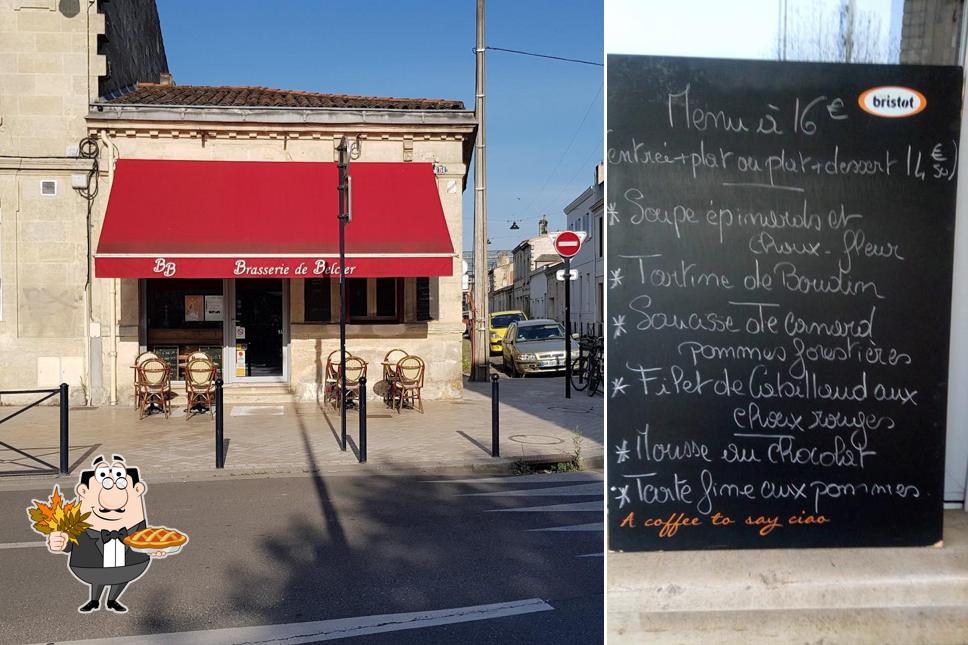 BB Brasserie de Belcier
bristot
Menu à 16€
entrée+plat ou plat+dessert 14€50)
* Soupe épinards et
choux-fleur
* Tartine de Boudin
* Saucisse de canard
pommes forestières
* Filet de Cabillaud aux
choux rouges
* Mousse au chocolat
* Tarte fine aux pommes
A coffee to say ciao